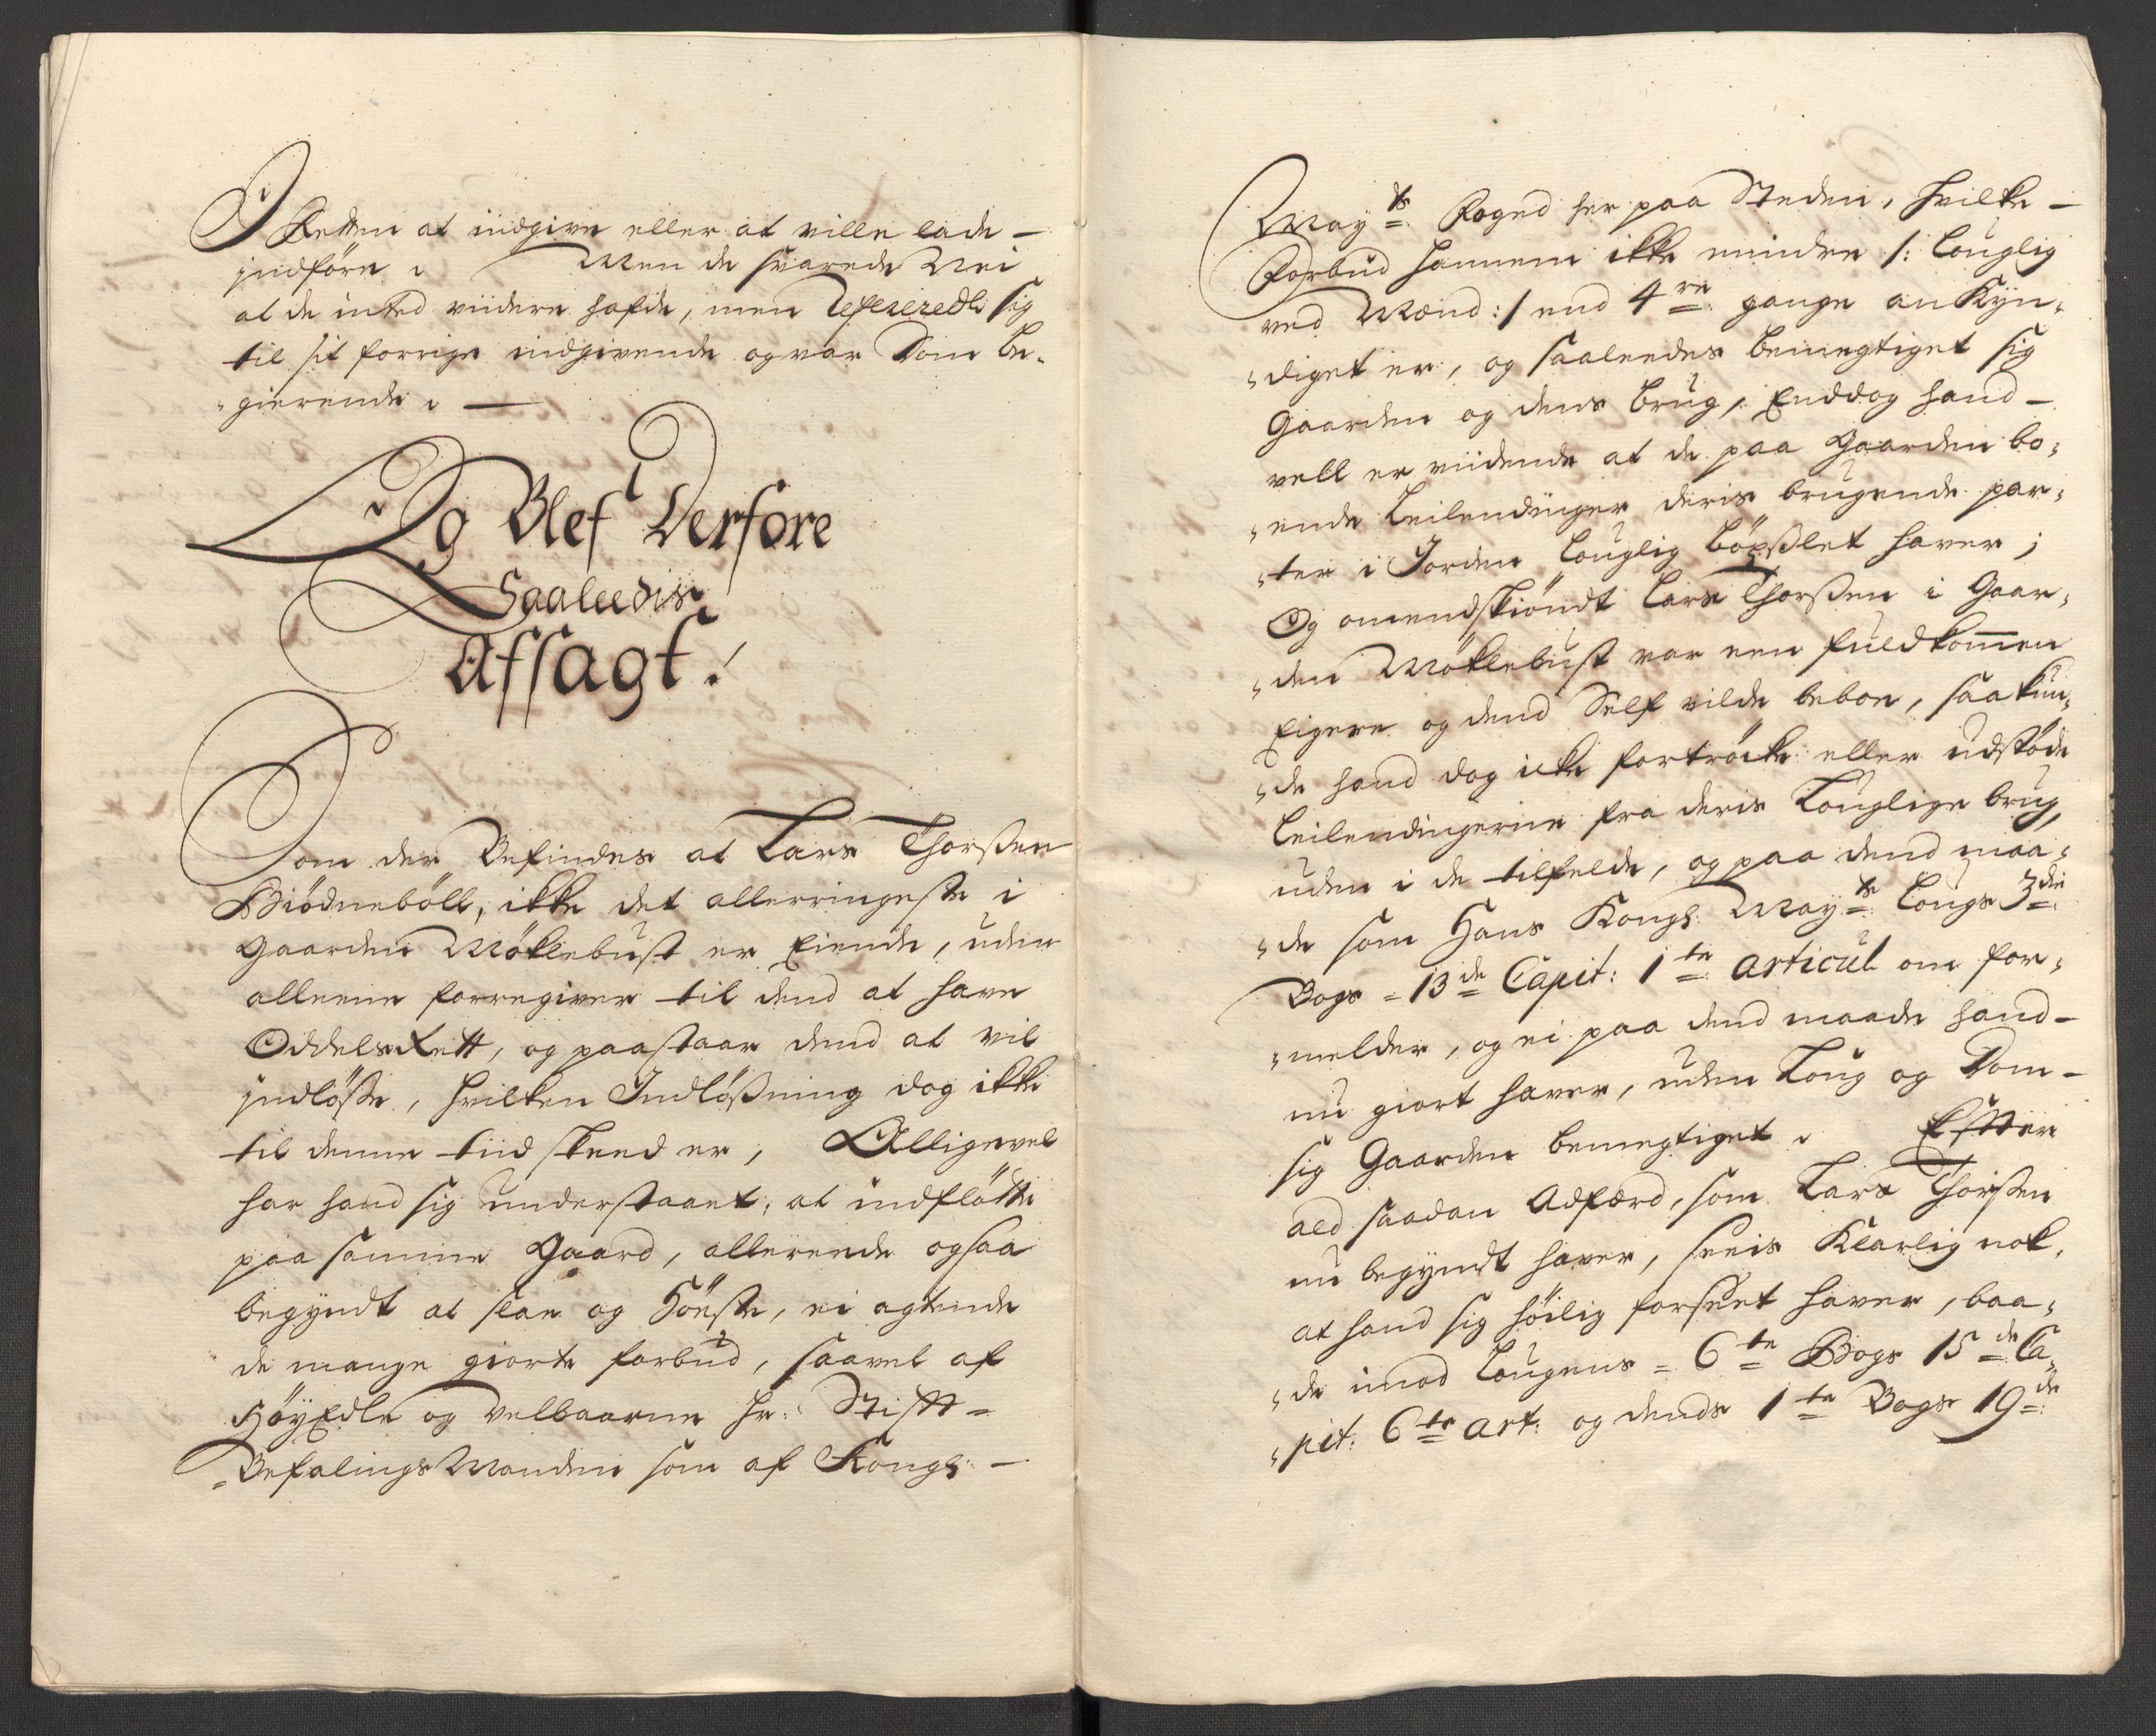 I Retten at indgive eller at ville lade –
jndföre. Men de svarede Nei
at de inted viidere hafde, men Refereredte sig
til sit forrige indgivende og var Dom be-
gierende. –
Og Blef Derfore
Saaleedis
Afsagt!
Som der Befindes at Lars Thorßen
Biödnebøll, ikke det allerringeste i
Gaarden Möklebust er Eiende, uden
alleene forregiver til dend at have
OddelsRett, og paastaar dend at vil
jndlöße, hvilken Indlößning dog ikke
til denne tiid skeed er, Alligevel
har hand sig understaaet, at indflötte
paa samme Gaard, allereede ogsaa
begyndt at slae og Höeste, ei agtende
de mange giorte forbud, saavel af
HöyEdle og Velbaarne Hr: Stift-
Befalings Manden som af Kongl: –
May ts Foged her paa Steden, hvilke –
Forbud hannem ikke mindre /: louglig
ved Mænd :/ end 4 re gange an Kyn-
diget er, og saaleedes bemegtiget sig
Gaarden og dens brug, Enddog hand –
vell er viidende at de paa Gaarden bo-
ende Leilendinger deris brugende par-
ter i Jorden louglig böxßlet haver;
Og omendskiöndt Lars Thorßen i Gaar-
den Möklebust var een fuldkommen
Eigere og dend Self vilde beboe, saa kun-
de hand dog icke fortröcke eller udstöde
Leilendingerne fra deris Louglige brug,
uden i de tilfelde, og paa dend maa-
de som Hans Kongl: May ts Lougs 3die
Bogs 13de Capit: 1te articul om for-
melder, og ei paa dend maade hand –
nu giort haver, uden Loug og Dom –
sig Gaarden bemegtiget. Efter
ald saadan Adfærd, som Lars Thorßen
nu begyndt haver, sees Klarlig nok,
at hand sig höilig forseet haver, baa-
de imod Lougens 6te Bogs 15de Ca-
pit: 6te art: og dends 1te Bogs 19de